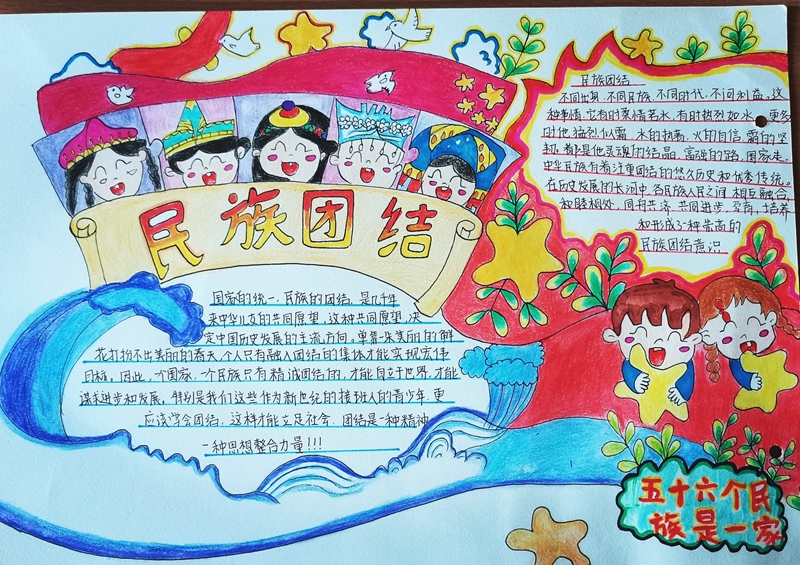 民族团结
国家的统一,民族的团结,是几千年
来中华儿女的共同愿望,这种共同愿望,决
定中国历史发展的主流方向。单靠一朵美丽的鲜
花打扮不出美丽的春天,个人只有融入团结的集体才能实现宏伟
目标。因此,一个国家,一个民族只有精诚团结的,才能自立于世界,才能
谋求进步和发展。特别是我们这些作为新世纪的接班人的青少年 更
应该学会团结,这样才能立足社会.团结是一种精神
一种思想整合力量!!!
民族团结
不同出身,不同民族,不同时代,不问利益。这
种事情,它有时柔情若水,有时热烈如水,更多
时他猛烈似霜,水的执着,火的自信,霜的坚
都是他灵魂的结晶,富强的路,国家走。
中华民族有着注重团结的悠久历史和优秀传统。
在历史发展的长河中,各民族人民之间,相互融合,
和睦相处,同舟共济,共同进步,孕育,培养
和形成了一种崇高的
民族团结意识
五十六个民
族是一家